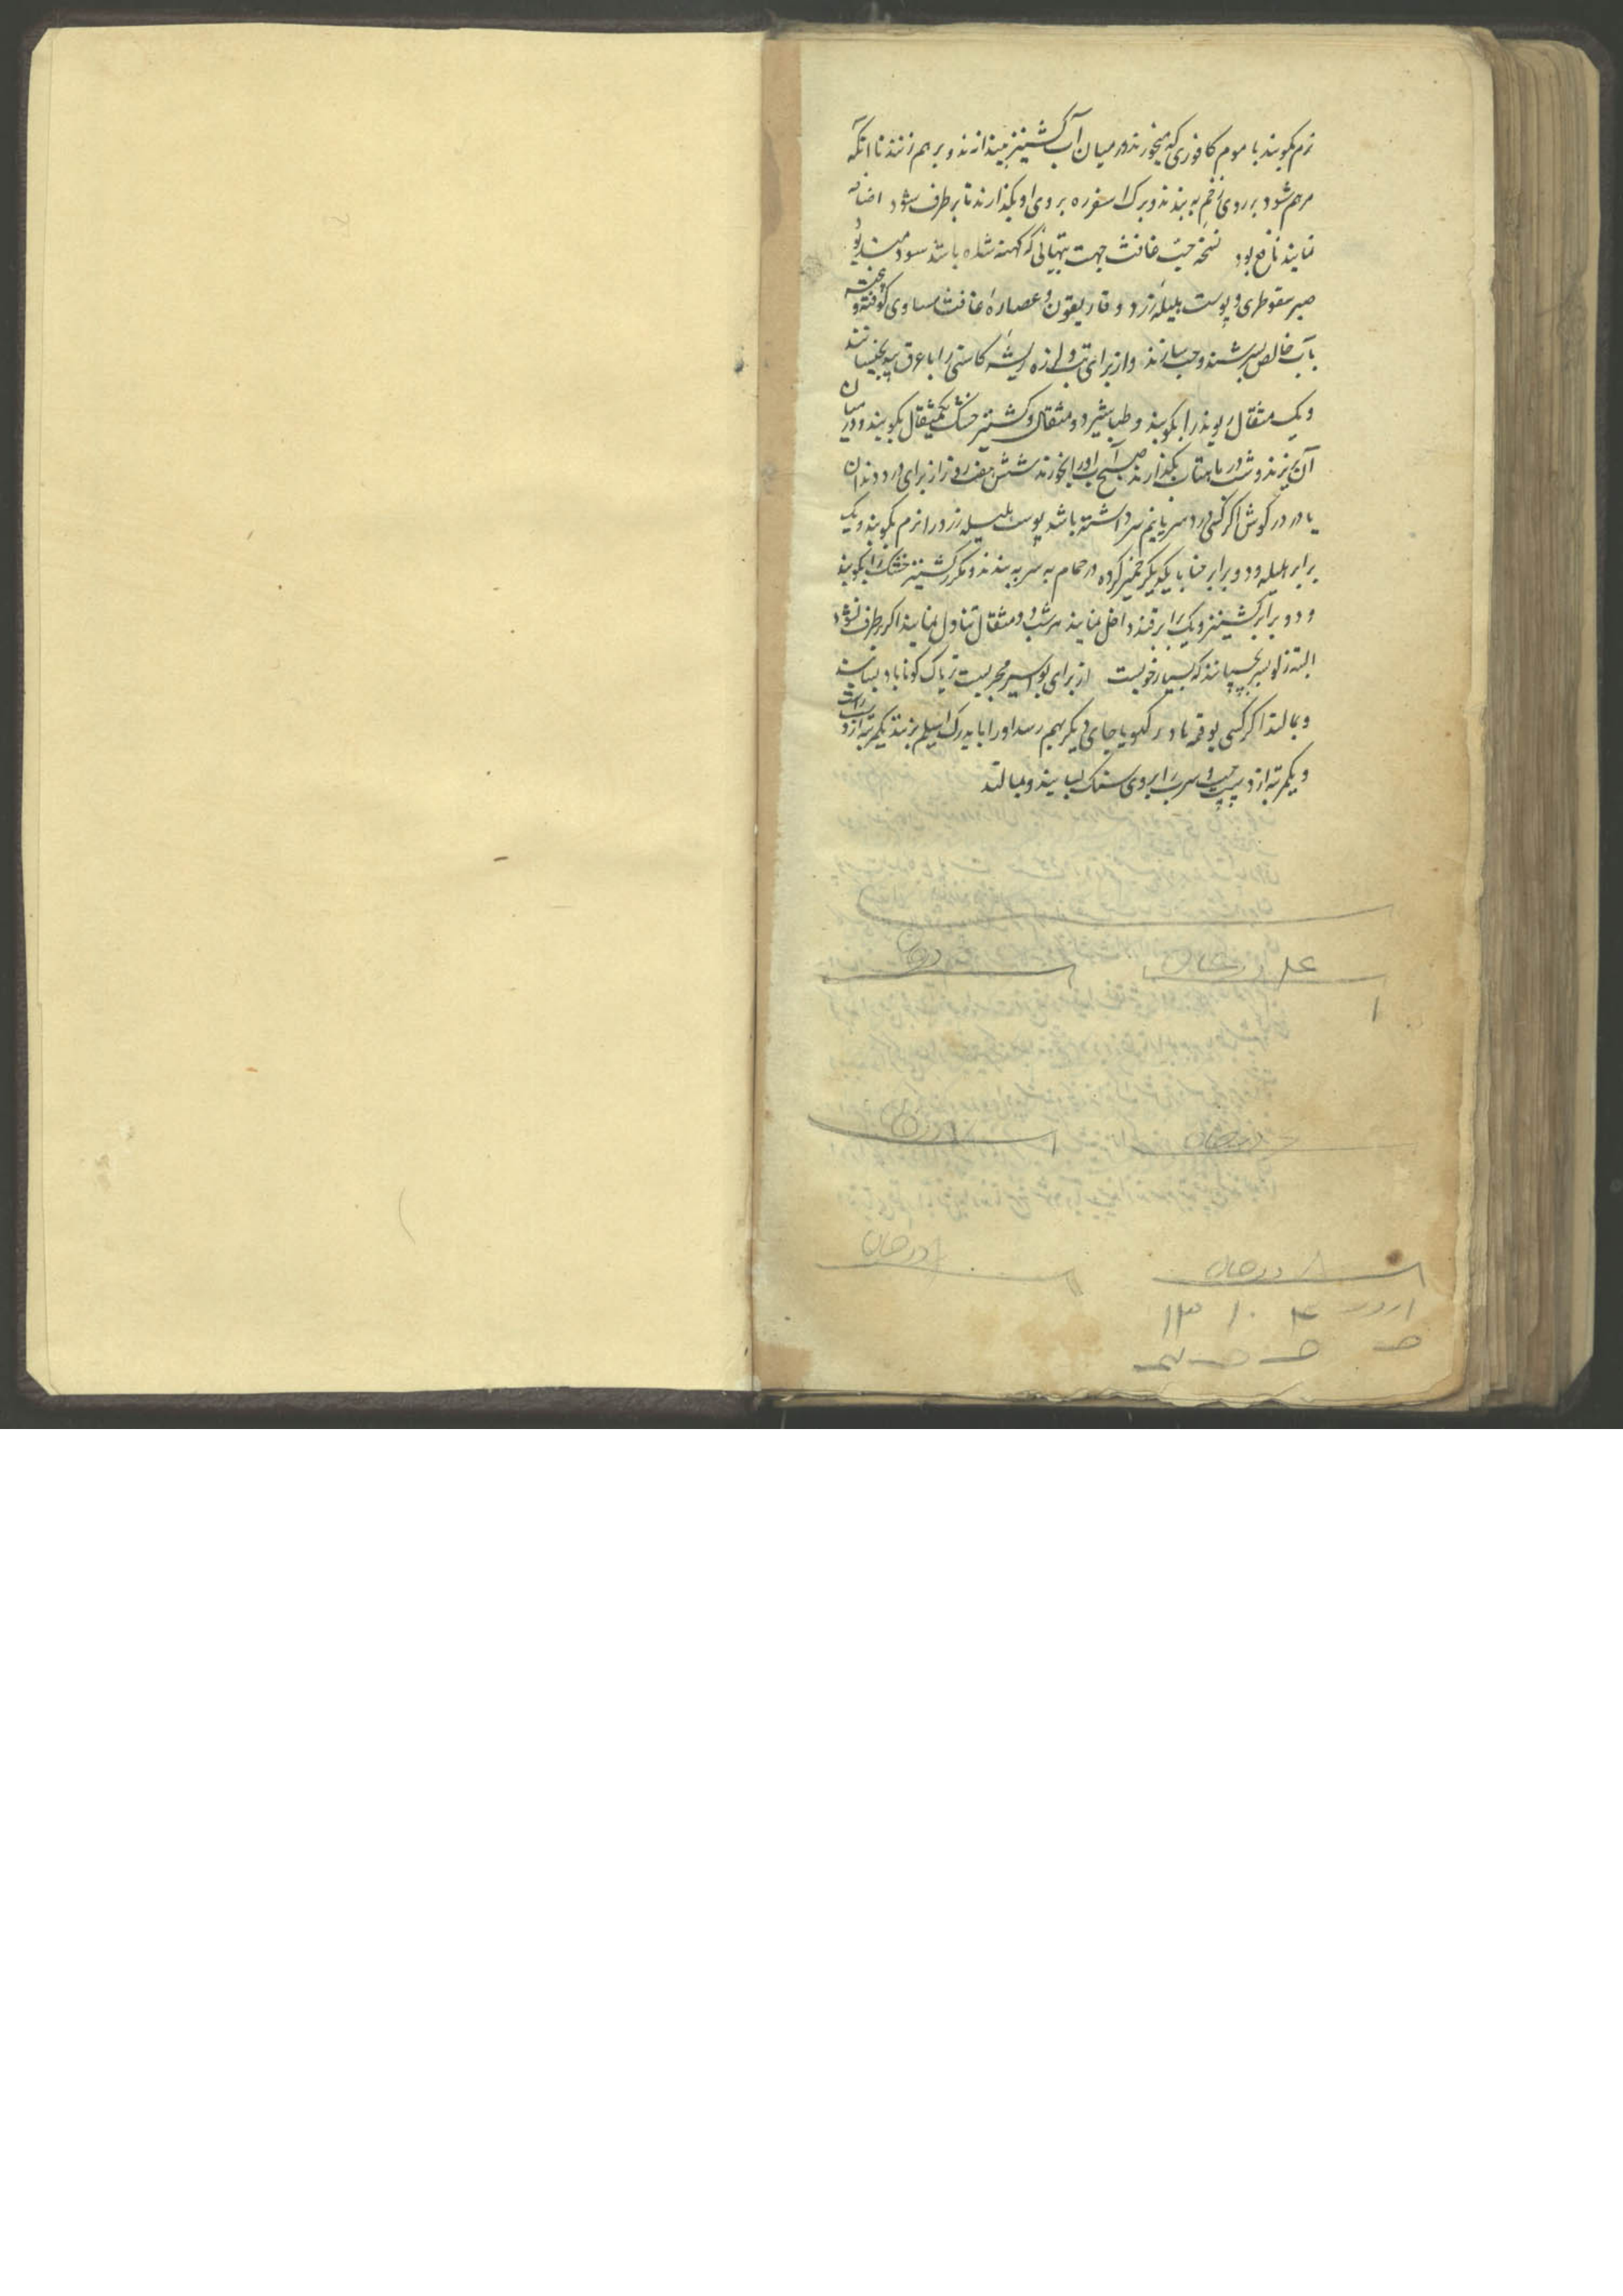 نرم بکوبند با موم کافوری که میخورند در میان آب کشنیز بیندازند و بر هم زنند تا آنکه
مرهم شود بر روی زخم به بندند و برک اسفره بروی او بگذارند تا برطرف شود اضافه
نمایند نافع بود نسخه حب غافث جهت تبهائی که کهنه شده باشد سودمند بود
صبر سقوطری و پوست هلیله زرد و غاریقون و عصاره غافث مساوی کوفته و بیخته
با آب خالص بسرشند و حب سازند و از برای تب و لرزه ریشه کاسنی را با عرق بید بخیسانند
و یک مثقال ریوند را بکوبند و طباشیر دو مثقال و کشنیز خشک یکمثقال بکوبند و در میان
آن بریزند و شب در ماهتاب بگذارند صبح آب او را بخورند شش هفت روز از برای درد دندان
یا درد گوش اگر کسی درد سر یا نیم سر داشته باشد پوست هلیله زرد را نرم بکوبند و یک
برابر هلیله و دو برابر حنا با یکدیگر خمیر کرده در حمام به سر به بندند و مکرر کشنیز خشک را بکوبند
و دو برابر کشنیز و یک برابر قند داخل نمایند هر شب دو مثقال تناول نمایند اگر برطرف نشود
البته زلو بسر بچسپانند که بسیار خوبست از برای بواسیر مجربست تریاک کوناباد بسایند
و بمالند اگر کسی بوقمه یا در گلو یا جای دیگر بهم رسد او را باید رک اسیلم بزنند یکمرتبه از دست راست
و یکمرتبه از دست چپ و سرب را بروی سنک بسایند و بمالند
درهان
درهان
۱
درهان
درهان
۸ درهان
درهان
۴ ۱۰ ۱۳